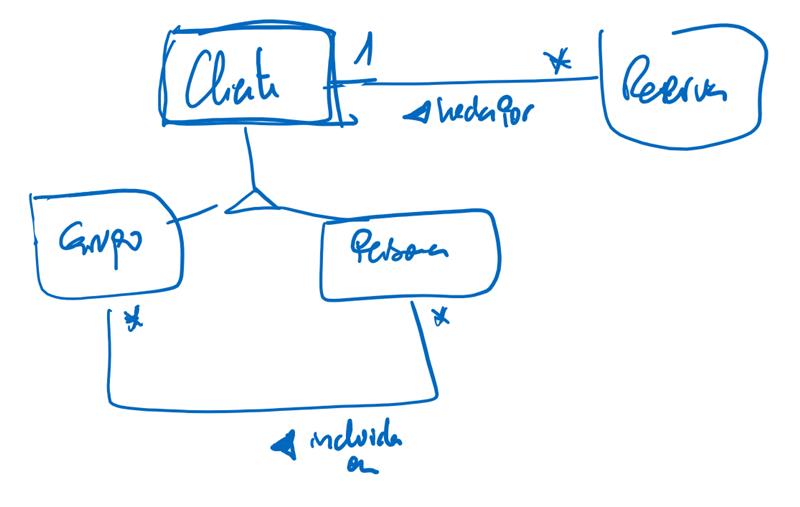 Cliente
1
*
Reserva
hecha por
Grupo
Persona
*
*
incluida
en